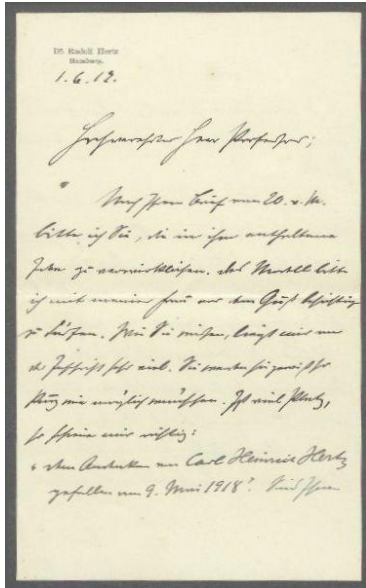 DR. Rudolf Hertz
Hamburg.
1.6.19.
Hochverehrter Herr Professor;
Nach Ihrem Brief vom 20. v. M.
bitte ich Sie, die in ihm enthaltene
Idee zu verwirklichen. Das Modell bitte
ich mit meiner Frau vor dem Guß besichtigen
zu dürfen. Wie Sie wissen, liegt mir an
der Inschrift sehr viel. Sie werden sie gewiß so
wie möglich wünschen. Ist viel Platz,
so schiene mir richtig:
"dem Andenken an Carl Heinrich Hertz
gefallen am 9. Mai 1918". Sind Ihnen